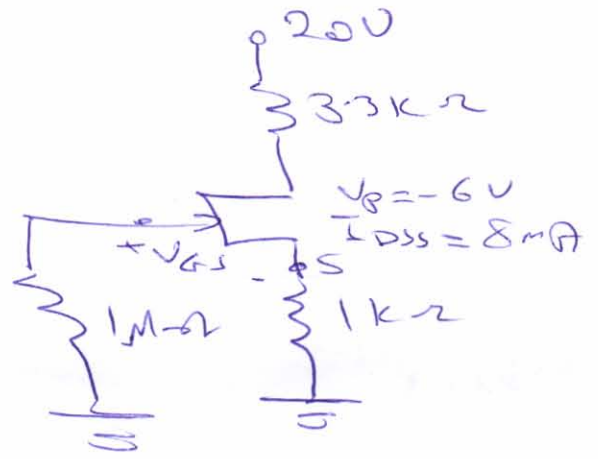 20V
3.3KΩ
Vp = -6V
IDSS = 8mA
+ VGS -
S
1MΩ
1KΩ